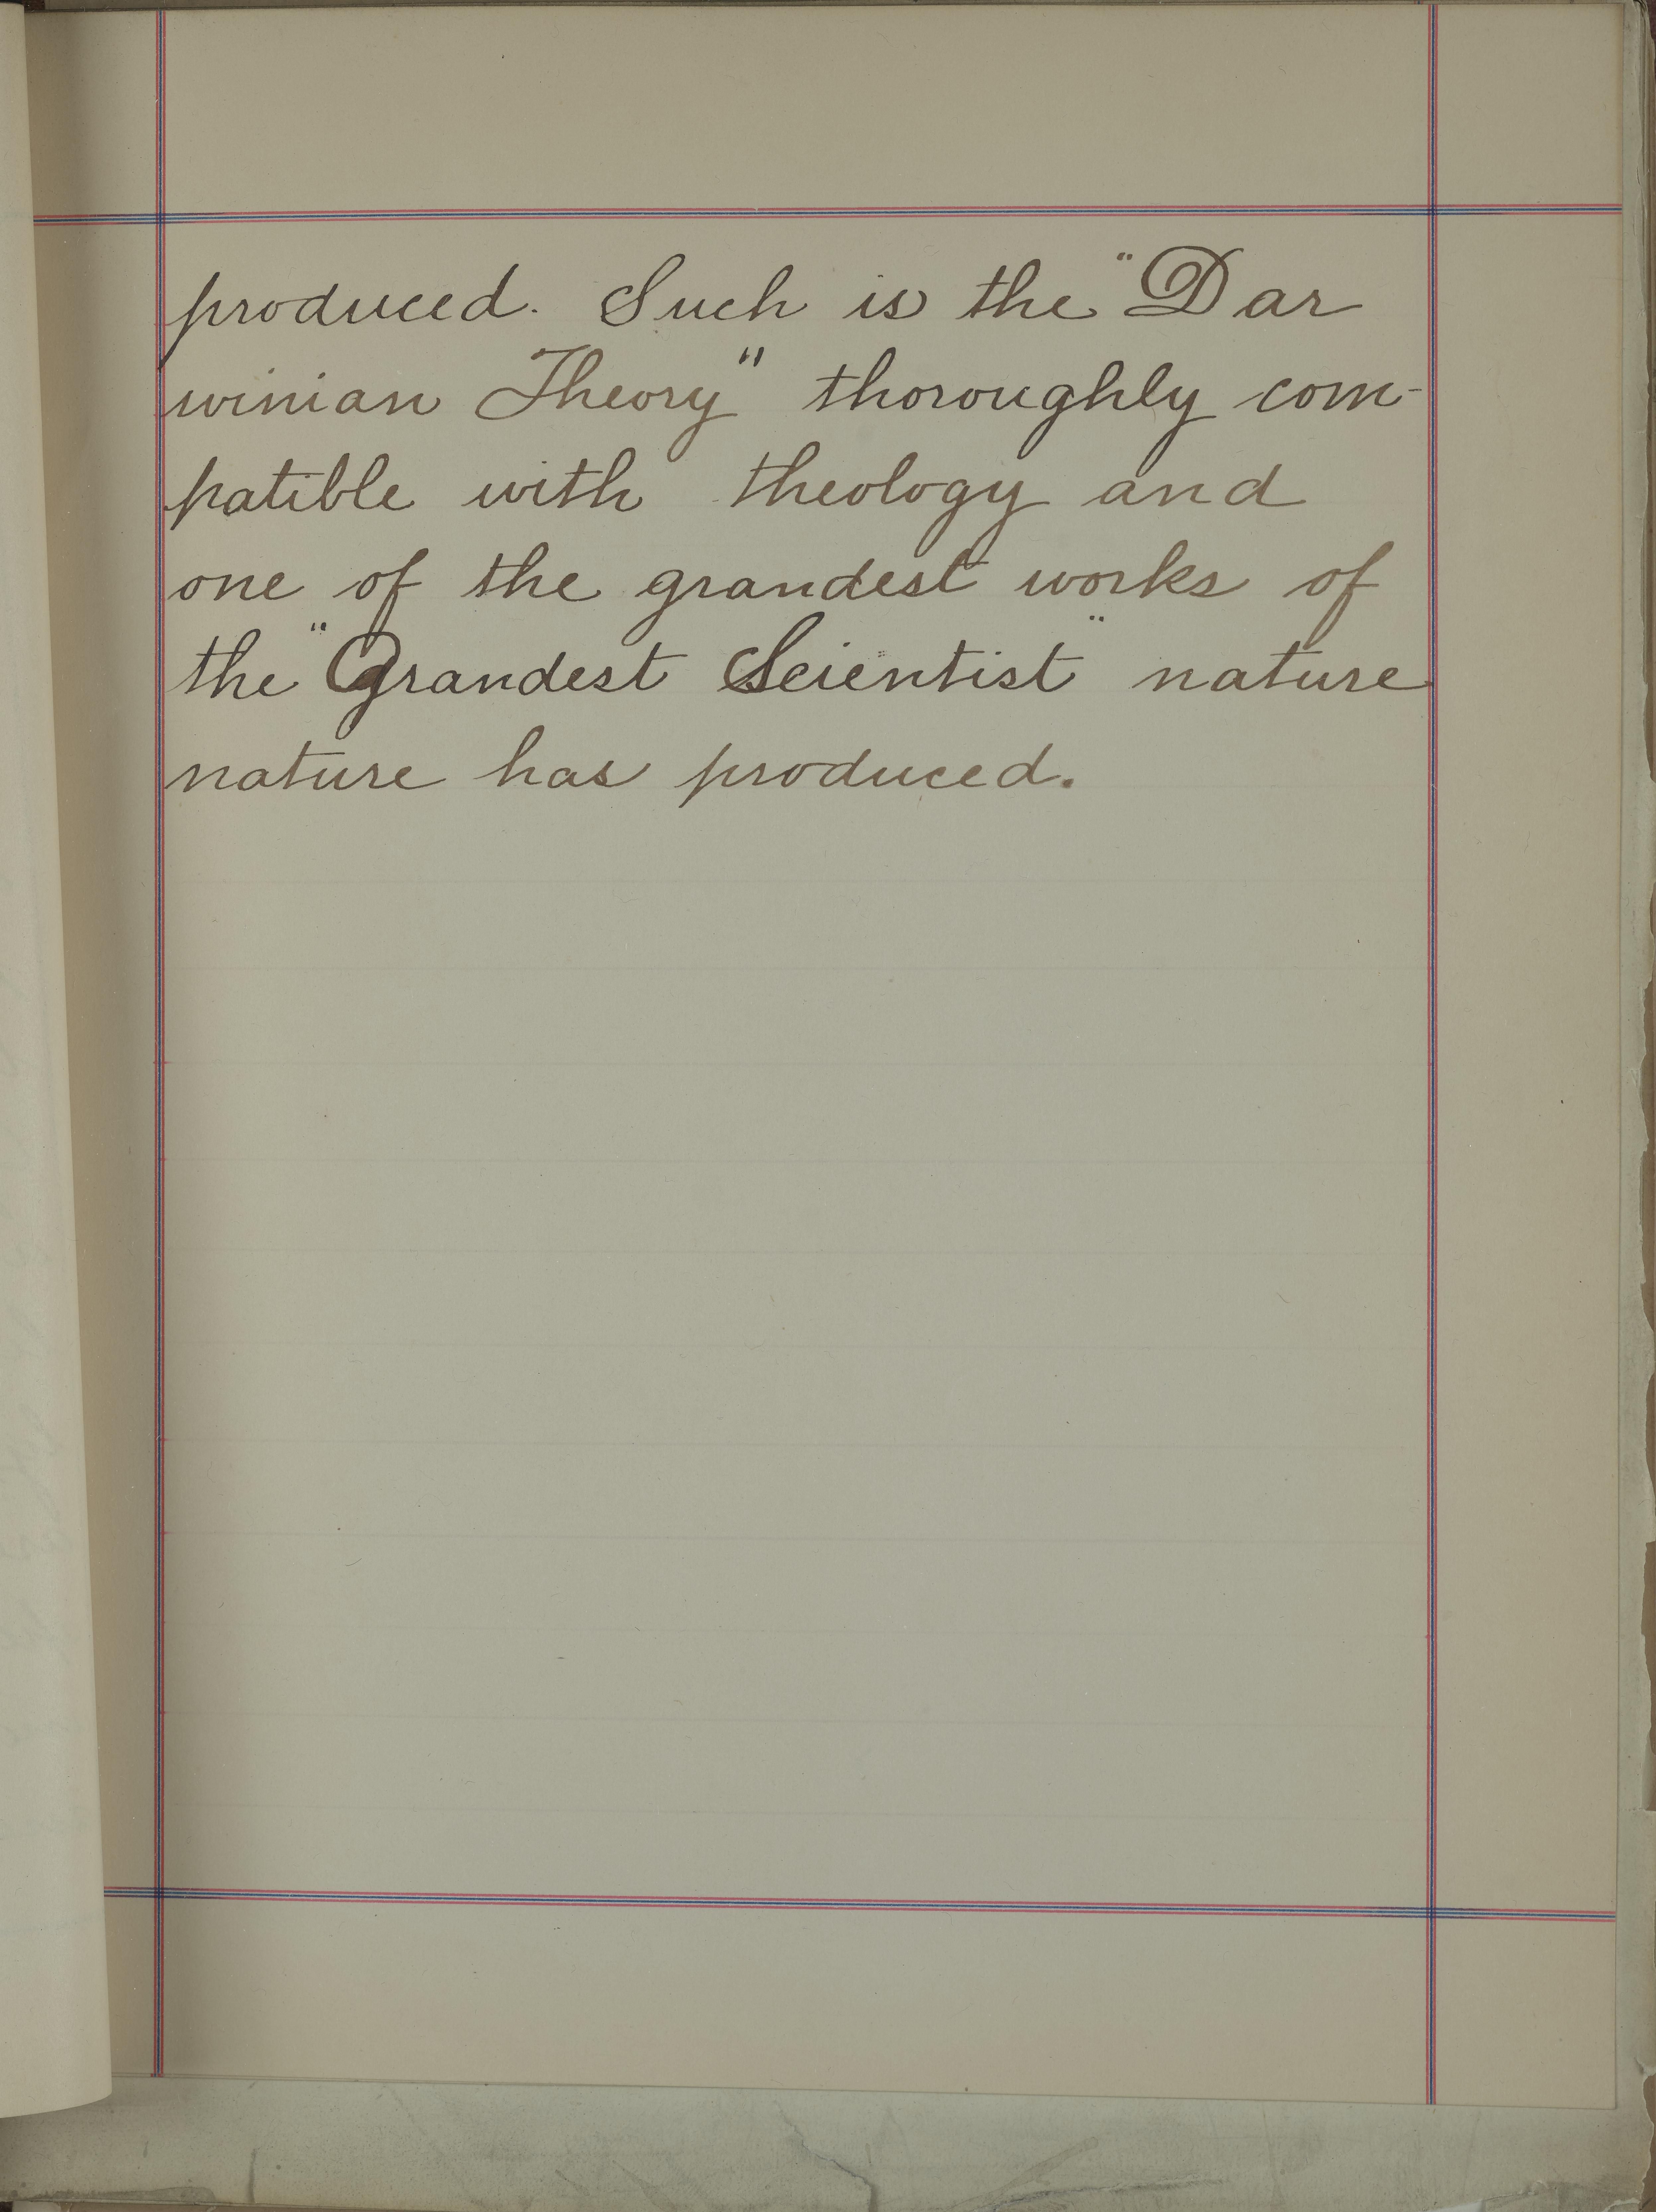 produced. Such is the "Dar
winian Theory" thoroughly com-
patible with theology and
one of the grandest works of
the "Grandest Scientist" nature
nature has produced.